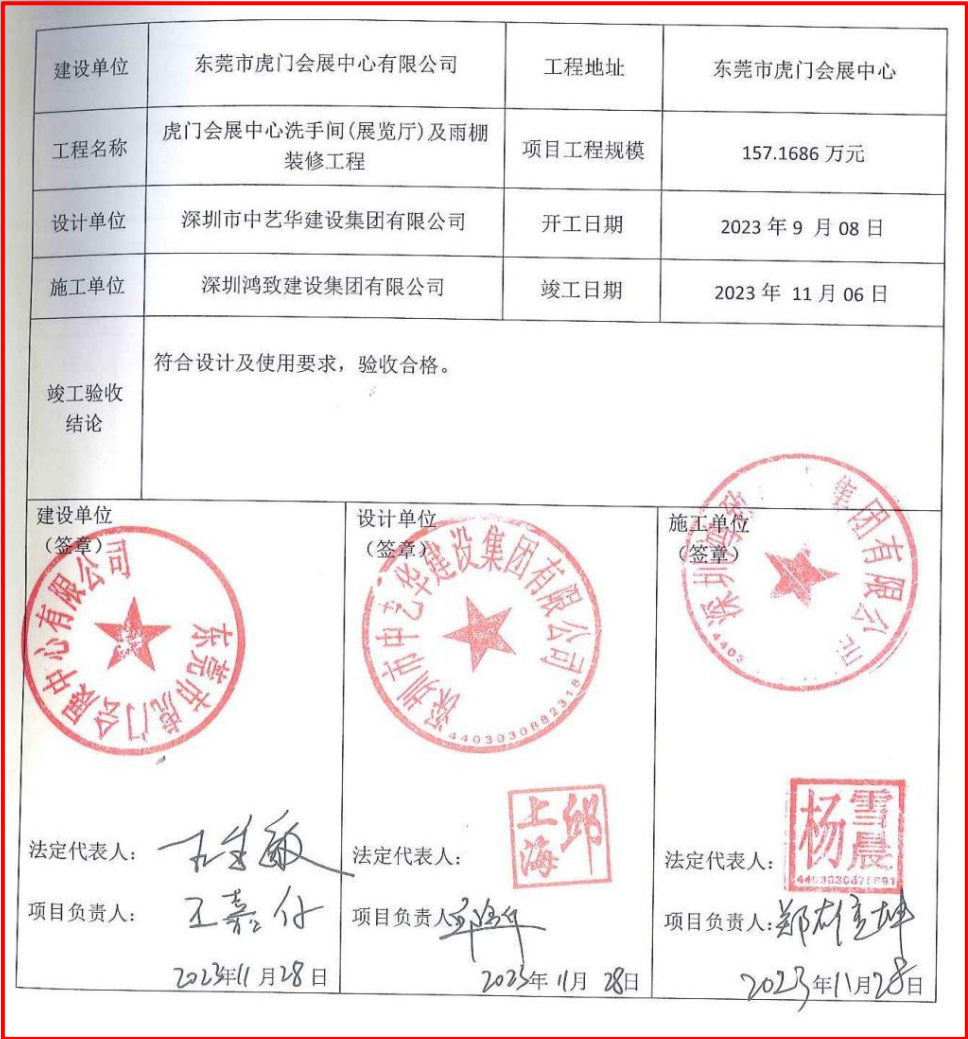 建设单位 东莞市虎门会展中心有限公司 工程地址 东莞市虎门会展中心
工程名称 虎门会展中心洗手间(展览厅)及雨棚
装修工程 项目工程规模 157.1686 万元
设计单位 深圳市中艺华建设集团有限公司 开工日期 2023 年 9 月 08 日
施工单位 深圳鸿致建设集团有限公司 竣工日期 2023 年 11 月 06 日
竣工验收
结论
符合设计及使用要求，验收合格。
建设单位
（签章）
东莞市虎门会展中心有限公司
法定代表人：
项目负责人：
2023年11月28日
设计单位
（签章）
深圳市中艺华建设集团有限公司
4403030882318
法定代表人：
上海
项目负责人
2023年11月28日
施工单位
（签章）
深圳 集团有限公司
4403
法定代表人：
杨雪晨
项目负责人：郑雄
2023年11月28日